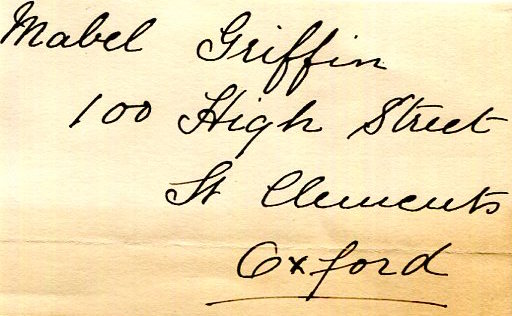 Mabel Griffin
100 High Street
St Clements
Oxford